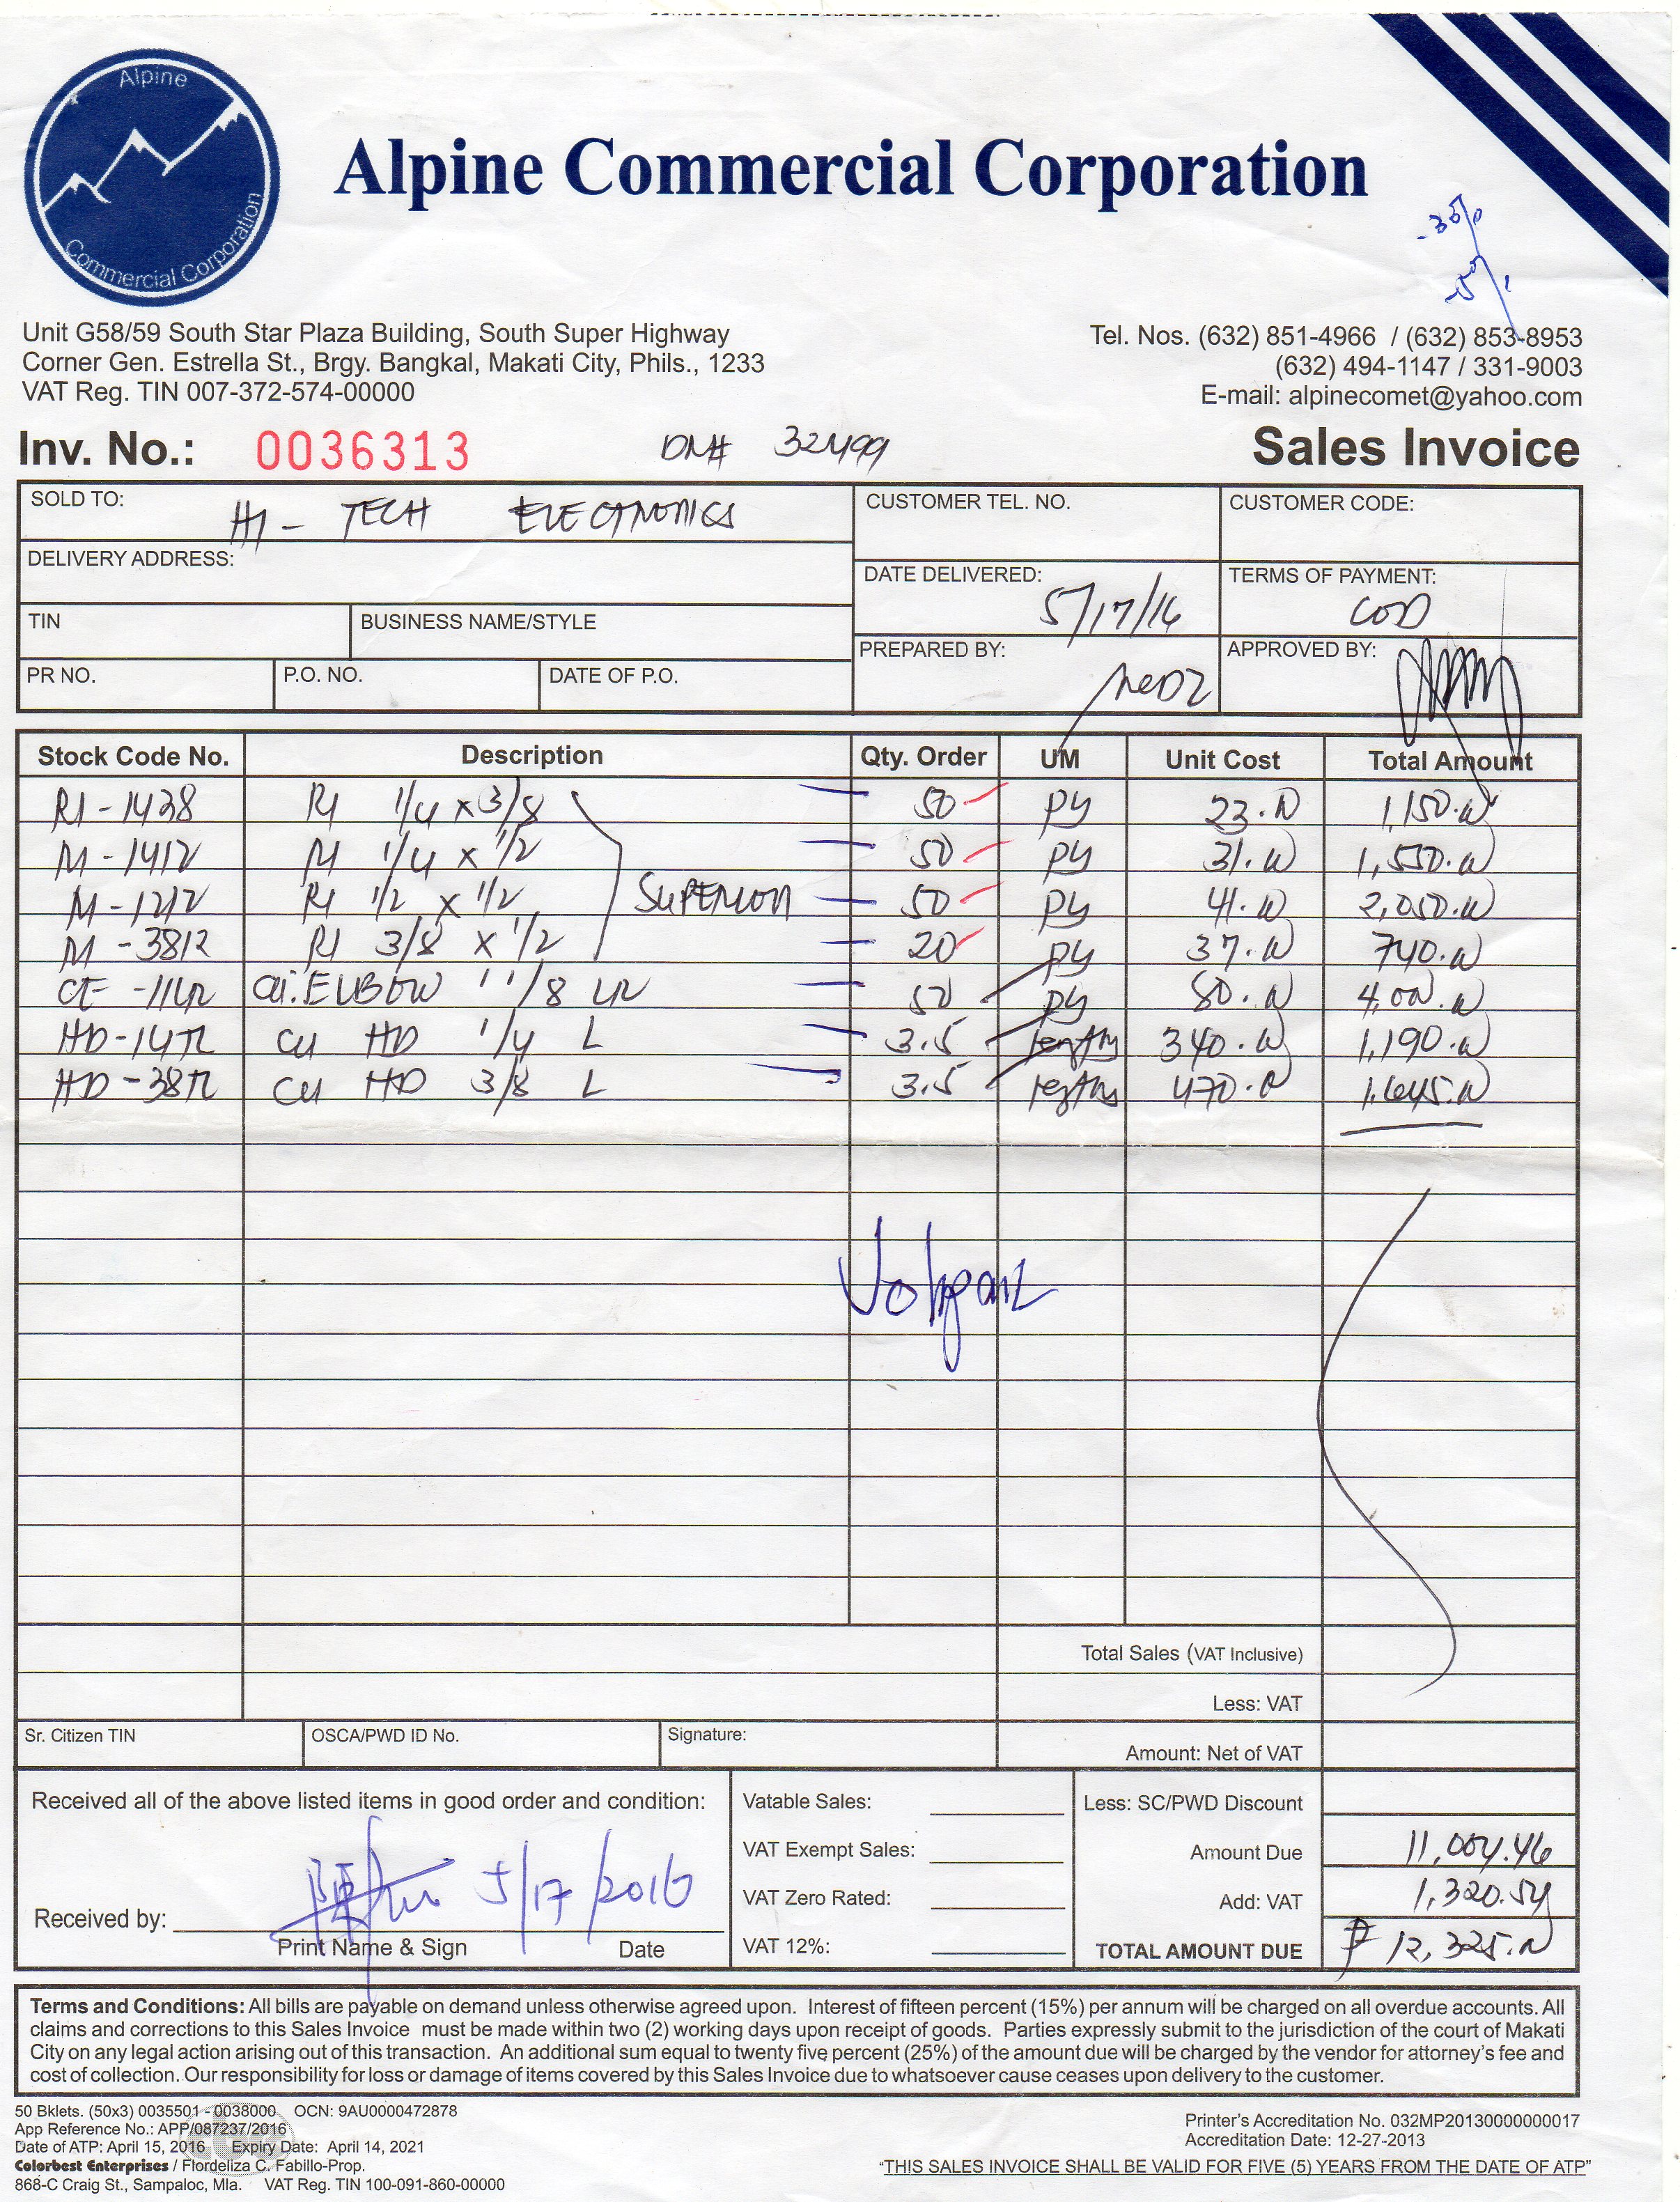 Alpine
Commercial Corporation
Alpine Commercial Corporation
-35%
-5%
Unit G58/59 South Star Plaza Building, South Super Highway
Corner Gen. Estrella St., Brgy. Bangkal, Makati City, Phils., 1233
VAT Reg. TIN 007-372-574-00000
Tel. Nos. (632) 851-4966 / (632) 853-8953
(632) 494-1147 / 331-9003
E-mail: alpinecomet@yahoo.com
Inv. No.: 0036313 DM# 32499 Sales Invoice
SOLD TO: HI-TECH ELECTRONICS CUSTOMER TEL. NO. CUSTOMER CODE:
DELIVERY ADDRESS:
DATE DELIVERED: 5/17/16 TERMS OF PAYMENT: COD
TIN BUSINESS NAME/STYLE
PREPARED BY: APPROVED BY:
PR NO. P.O. NO. DATE OF P.O.
Stock Code No. Description Qty. Order UM Unit Cost Total Amount
RI-1438 RI 1/4 x 3/8 50 23.00 1,150.00
RI-1412 RI 1/4 x 1/2 50 31.00 1,550.00
RI-1212 RI 1/2 x 1/2 SUPERLON 50 41.00 2,050.00
RI-3812 RI 3/8 x 1/2 20 37.00 740.00
CE ELBOW 1 1/8 50 80.00 4,000.00
HD-14TL CU HD 1/4 L 3.5 lengths 340.00 1,190.00
HD-38TL CU HD 3/8 L 3.5 lengths 470.00 1,645.00
Total Sales (VAT Inclusive)
Less: VAT
Sr. Citizen TIN OSCA/PWD ID No. Signature: Amount: Net of VAT
Received all of the above listed items in good order and condition: Vatable Sales: Less: SC/PWD Discount
VAT Exempt Sales: Amount Due 11,004.46
5/17/2016 VAT Zero Rated: Add: VAT 1,320.54
Received by:
Print Name & Sign Date VAT 12%: TOTAL AMOUNT DUE ₱ 12,325.00
Terms and Conditions: All bills are payable on demand unless otherwise agreed upon. Interest of fifteen percent (15%) per annum will be charged on all overdue accounts. All
claims and corrections to this Sales Invoice must be made within two (2) working days upon receipt of goods. Parties expressly submit to the jurisdiction of the court of Makati
City on any legal action arising out of this transaction. An additional sum equal to twenty five percent (25%) of the amount due will be charged by the vendor for attorney's fee and
cost of collection. Our responsibility for loss or damage of items covered by this Sales Invoice due to whatsoever cause ceases upon delivery to the customer.
50 Bklets. (50x3) 0035501 - 0038000 OCN: 9AU0000472878
App Reference No.: APP/087237/2016
Date of ATP: April 15, 2016 Expiry Date: April 14, 2021
Colorbest Enterprises / Flordeliza C. Fabillo-Prop.
868-C Craig St., Sampaloc, Mla. VAT Reg. TIN 100-091-860-00000
Printer's Accreditation No. 032MP20130000000017
Accreditation Date: 12-27-2013
"THIS SALES INVOICE SHALL BE VALID FOR FIVE (5) YEARS FROM THE DATE OF ATP"